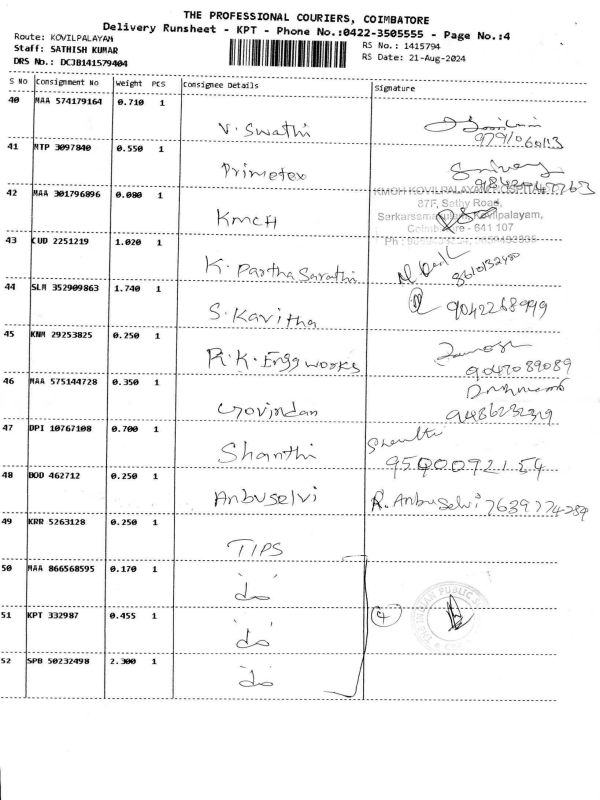 THE PROFESSIONAL COURIERS, COIMBATORE
Delivery Runsheet - KPT - Phone No.:0422-3505555 - Page No.:4
Route: KOVILPALAYAM
Staff: SATHISH KUMAR
DRS No.: DCJB141579404
RS No.: 1415794
RS Date: 21-Aug-2024
S No Consignment No Weight PCS Consignee Details Signature
40 MAA 574179164 0.710 1 V. Swathi
41 MTP 3097840 0.550 1 Primetex
42 MAA 301796896 0.080 1 KMCH
KMCH KOVILPALAYAM
87F, Sathy Road,
Kovilpalayam,
641 107
43 CUD 2251219 1.020 1 K. Partha Sarathi 8610132400
44 SLM 352909863 1.740 1 S. Kavitha 9042268999
45 KNM 29253825 0.250 1 R.K. Engg works 9047089089
46 MAA 575144728 0.350 1 Govindan
47 DPI 10767108 0.700 1 Shanthi
48 BOD 462712 0.250 1 Anbuselvi R. Anbuselvi
49 KRR 5263128 0.250 1 TIPS
50 MAA 866568595 0.170 1 do
51 KPT 332987 0.455 1 do 4
52 SPB 50232498 2.300 1 do